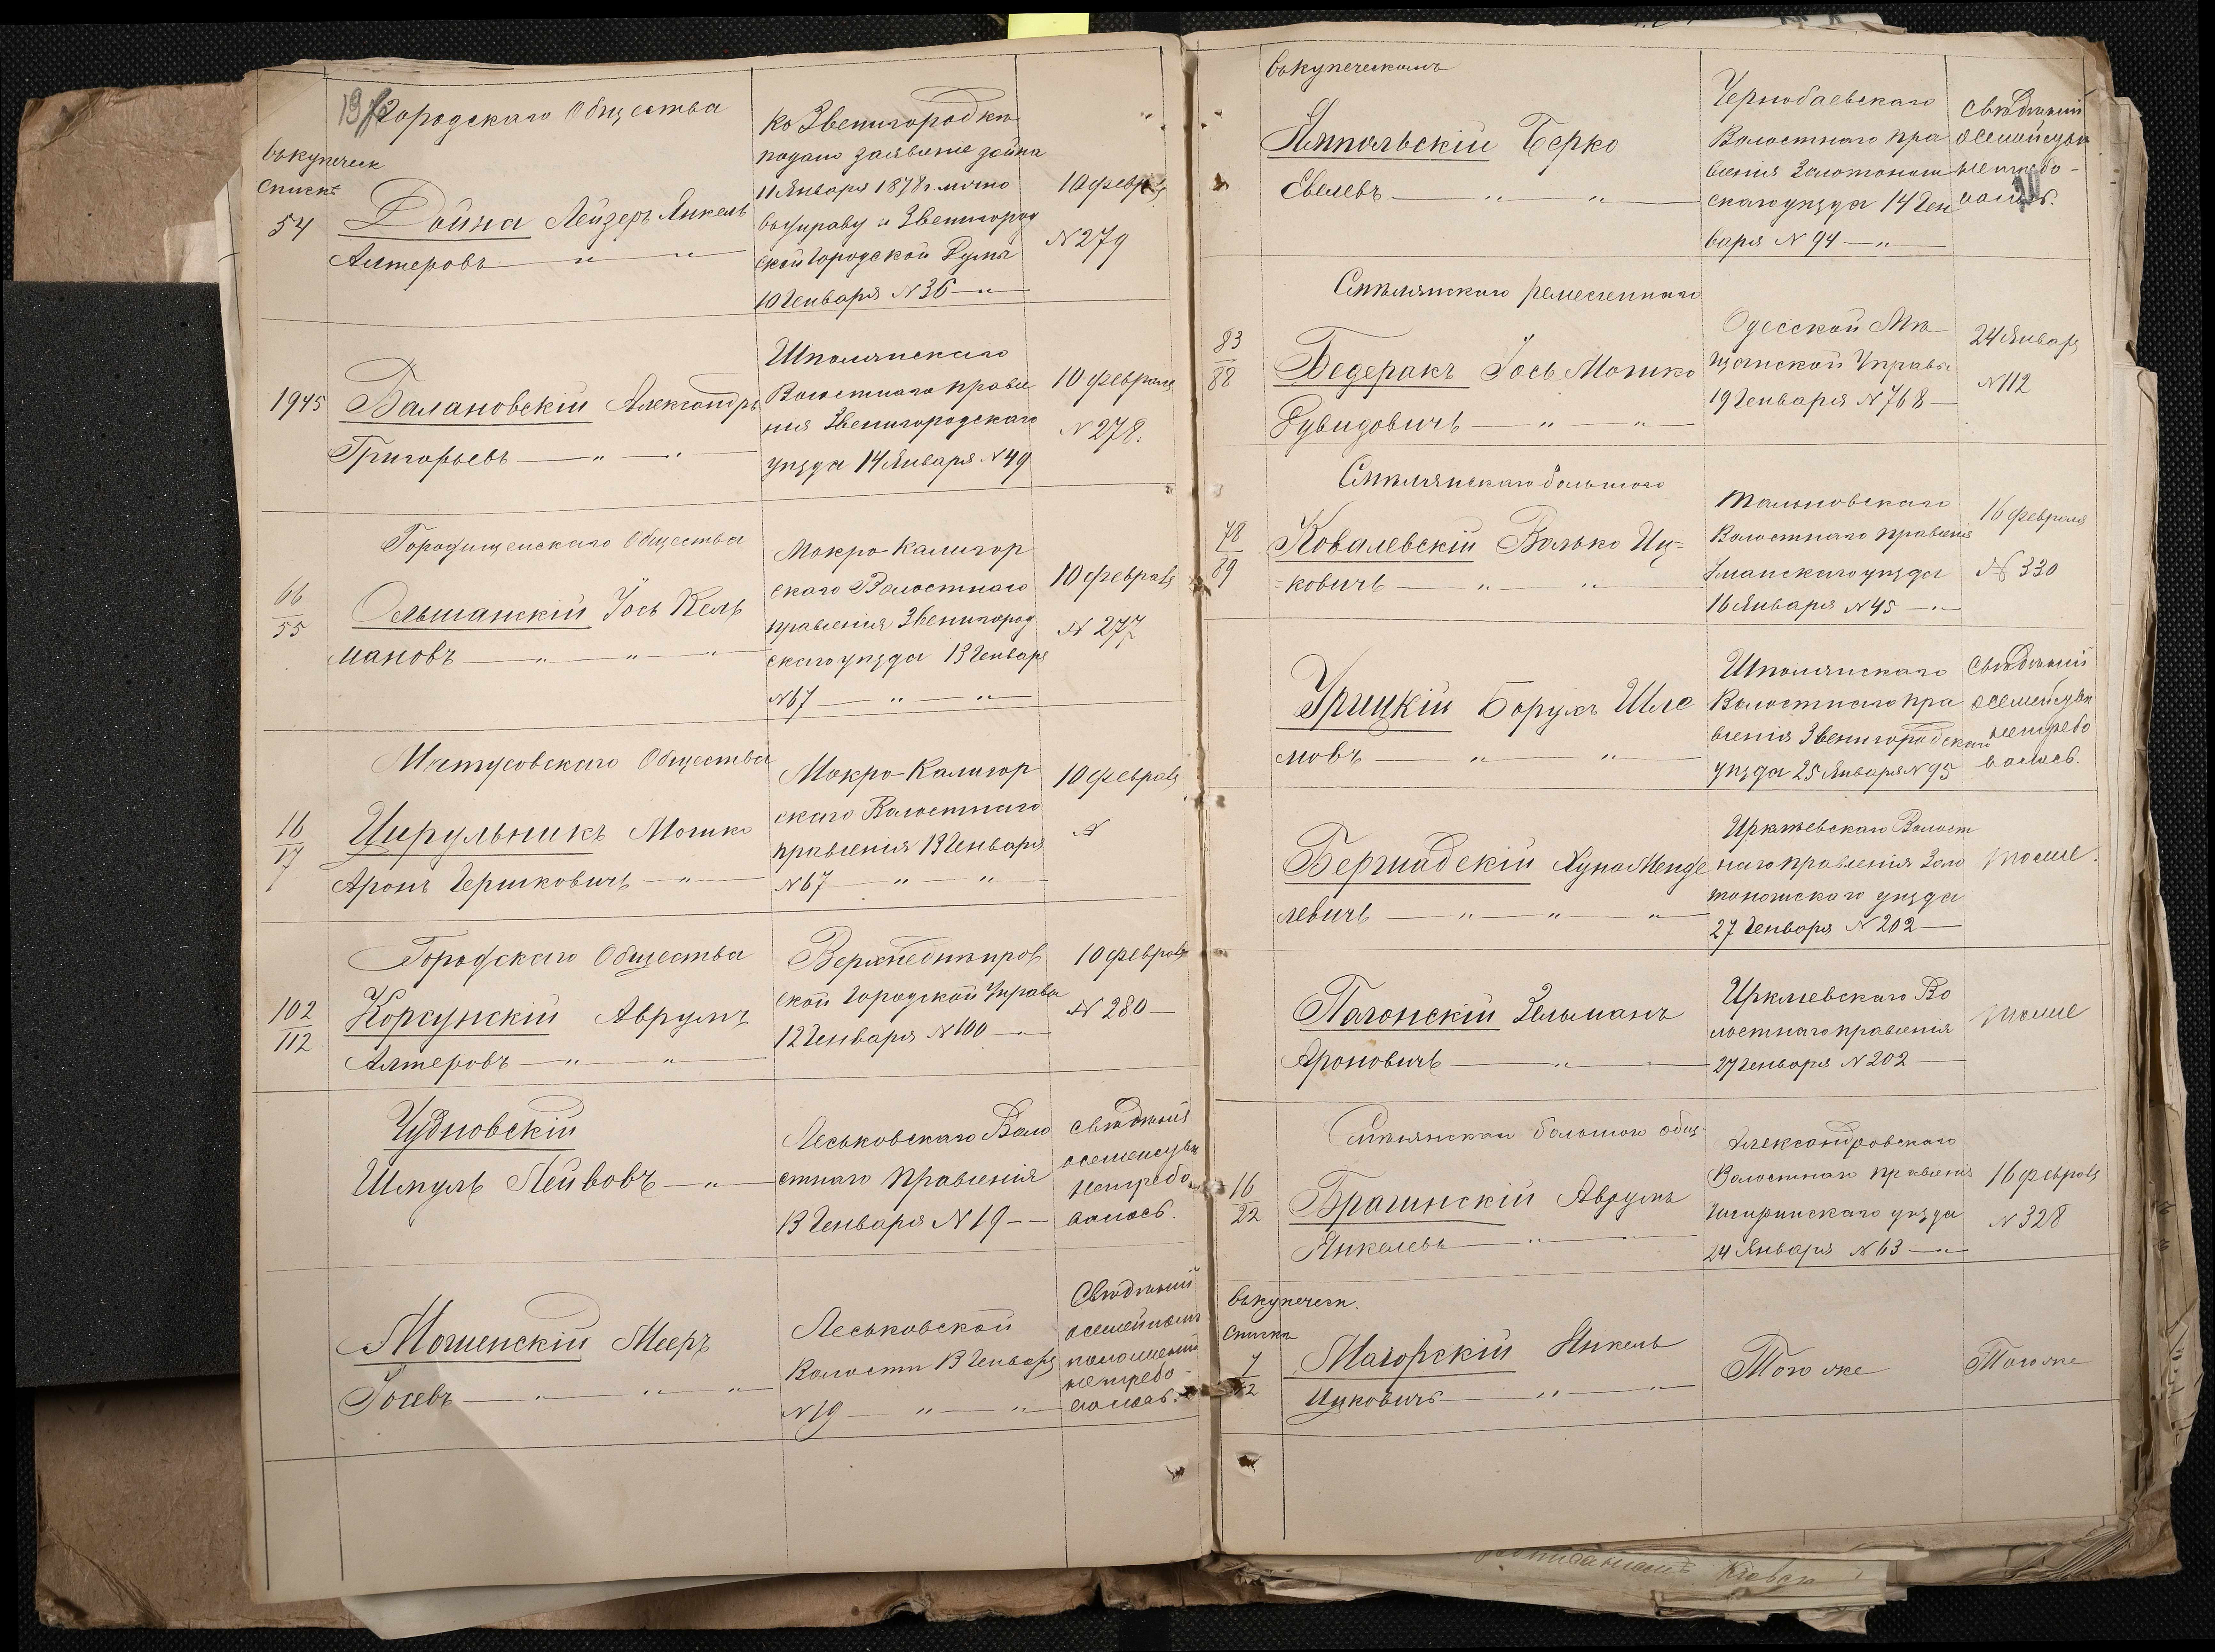 Городскаго Общества
вькупеческ
спискѣ
54
Дойна Лейзеръ Янкель
Алтеровъ — " — " —
Ко Звенигородкѣ
подано заявленіе Дойна
11 Января 1878 г. лично
и Звенигород
ской Городской Думы
10 Генваря N 36 — " —
10 февр
N 279
1945
Балановскій Александръ
Григорьевъ — " — " —
Шполянскаго
Волостнаго правле
нія Звенигородскаго
уѣзда 14 Января N 49
10 февраля
N 278.
Городищенскаго Общества
66
55
Ольшанскій Іось Кель
мановъ — " — " — "
Мокро-Калигор
скаго Волостнаго
правленія Звенигород
скаго уѣзда 13 Генваря
N 67 — " — " —
10 февраля
N 277
Мятусовскаго Общества
16
17
Цирульникъ Мошко
Аронъ Гершковичъ — " —
Мокро-Калигор
скаго Волостнаго
правленія 13 Генваря
N 67 — " — " —
10 февраля
N
Городскаго Общества
102
112
Корсунскій Аврумъ
Алтеровъ — " — " —
Верхнеднѣпров
ской Городской Управы
12 Генваря N 100 — " —
10 февраля
N 280 —
Чудновскій
Шмуль Лейвовъ — " —
Леськовскаго Воло
стнаго Правленія
13 Генваря N 19 — —
Свѣдѣній
осемейству
нетребо
валось.
Мошенскій Мееръ
Іосевъ — " — " — "
Леськовской
Волости 13 Генваря
N 19 — " — " —
Свѣдѣній
осемейномъ
положеніи
нетребо
валось.
вькупеческомъ
Ямпольскій Берко
Евелевъ — " — " —
Чернобаевскаго
Волостнаго пра
вленія Золотонош
скаго уѣзда 14 Ген
варя N 94 — " —
Свѣдѣній
осемейству
нетребо-
валось.
Смѣлянскаго ремесленнаго
83
88
Бедеракъ Іось Мошко
Дувидовичъ — " — " —
Одесской Мѣ
щанской Управы
19 Генваря N 768 —
24 Января
N 112
Смѣлянскаго большого
78
89
Ковалевскій Волько Иц=
=ковичъ — " — "
Тальновскаго
Волостнаго правленія
Уманскаго уѣзда
16 Января N 45 — " —
16 февраля
N 330
Урицкій Борухъ Шле
мовъ — " — " —
Шполянскаго
Волостнаго пра
вленія Звенигородскаго
уѣзда 25 Января N 95
Свѣдѣній
осемейству
нетребо
валось.
Бершадскій Нуна Менде
левичъ — " — " — " —
Ирклѣевскаго Волост
наго правленія Золо
тоношскаго уѣзда
27 Генваря N 202 —
тоже.
Погонскій Зельманъ
Ароновичъ — " —
Ирклиевскаго Во
лостнаго правленія
27 Генваря N 202 —
тоже
Смѣлянскаго большого общ.
16
22
Брагинскій Аврумъ
Янкелевъ — " — " —
Александровскаго
Волостнаго правленія
Чигиринскаго уѣзда
24 Января N 63 — " —
16 февраля
N 328
вькупеческ.
списки
7
12
Магорскій Янкель
Ицковичъ — " — " —
Того же
Того же